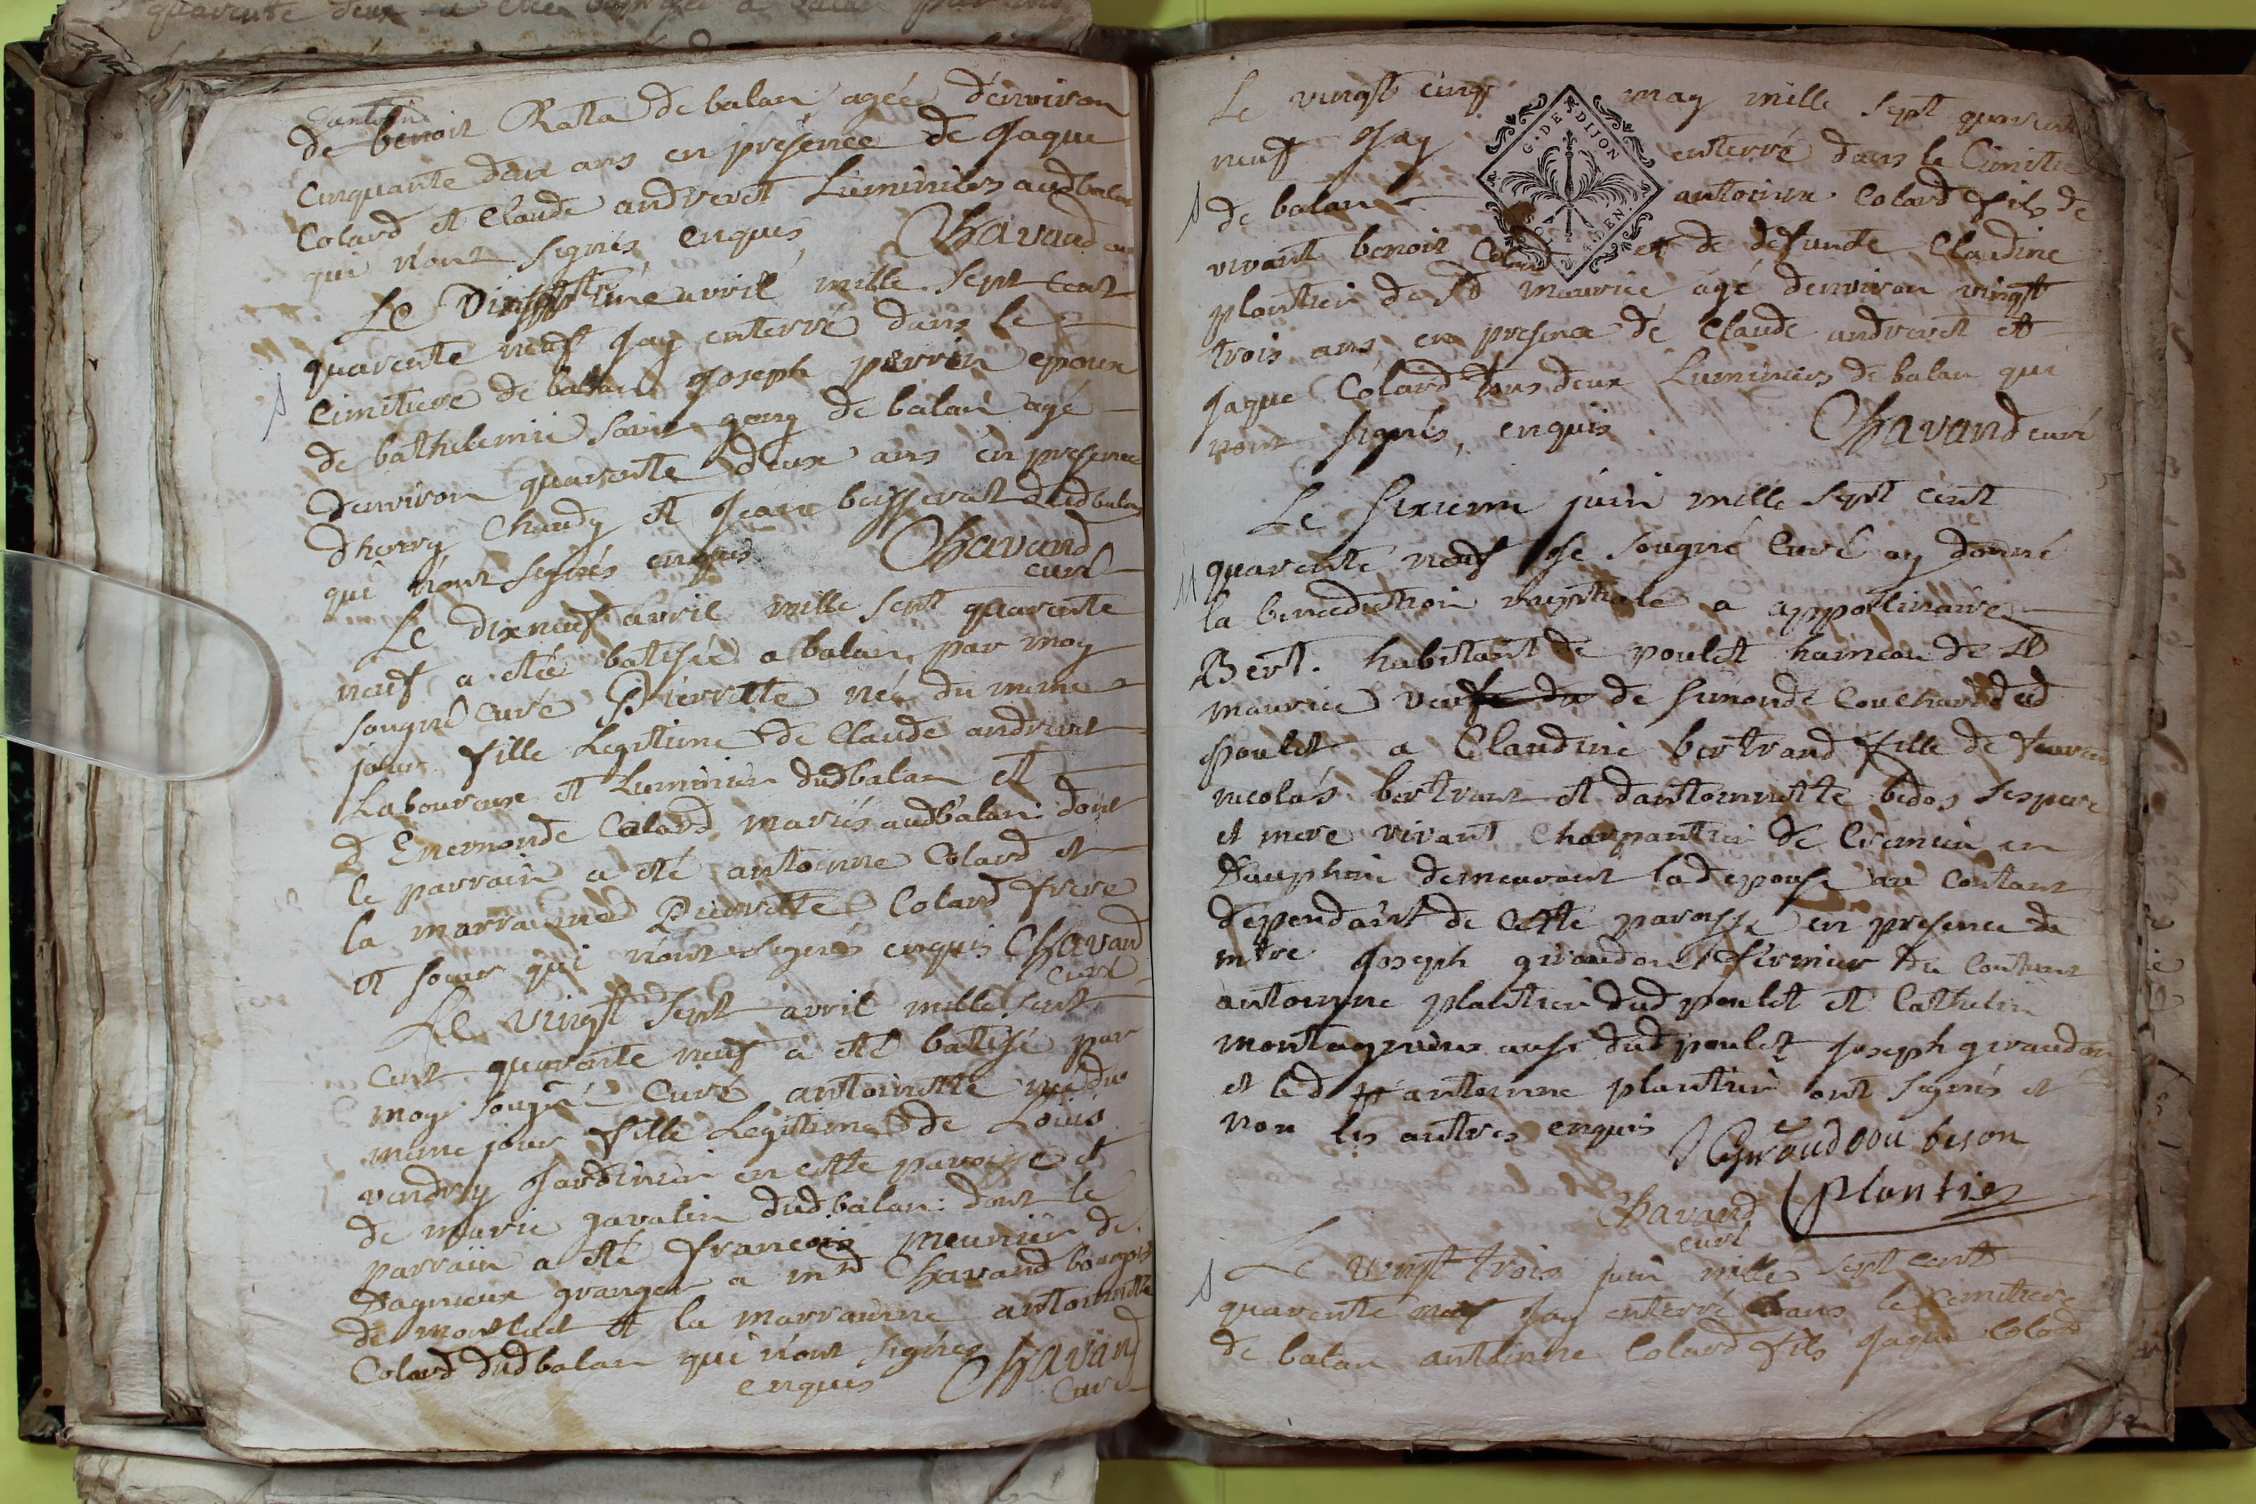 d'antoine
de benoit Rata de balan agée denviron
Cinquante deux ans en présence de Jaque
Colard et Claude andreret Luminiers audbalan
qui n'ont signés enquis Chavand curé
Le avril mille sept cent
quarente neuf Jay enterré dans le
Cimitiere de balan Joseph perrin epoux
de bathelemie saint de balan agé
denviron quarente deux ans en presence
dhenry Chaudy et Jean buisserat dudbalan
qui n'ont signés enquis Chavand
curé
Le dixneuf avril mille sept quarente
neuf a eté batisée a balan par moy
sougné Curé Pierrette née du meme
jour fille Legitime de Claude andreret
Laboureur et Luminier dudbalan et
d Enemonde Colard mariés audbalan dont
le parrain a eté antoinne Colard et
la marrainne Pierrette Colard frere
et soeur qui n'ont signés enquis Chavand
curé
Le vingt sept avril mille sept
cent quarante neuf a eté batisé par
moy sougné Curé antoinette née du
meme jour fille Legitime de Loüis
vendry Jardinier en cette paroisse et
de marie gavalin dudbalan dont le
parrain a eté francois meunier de
Dagnieux granger a mrd Chavand bourgois
de montluel et la marrainne antoinette
Colard dudbalan qui n'ont signés
enquis Chavand
Curé
Le vingt cinq may mille sept quarente
neuf Jay enterré dans le Cimitiere
de balan antoinne Colard fils de
vivant benoit Colard et de defunte Claudine
plantier de St maurice agé denviron vingt
trois ans en presence de Claude andreret et
Jaque Colard tous deux Luminiers de balan qui
n'ont signés, enquis Chavand curé
G. DE DIJON
Le sixieme juin mille sept cent
quarente neuf Je sougné Curé ay donné
la benediction nuptiale a appolinaire
Bert. habitant de poulet hameau de St
maurice veuf de Simonde Couchard dud
poulet a Claudine bertrand fille de
nicolas bertrand et dantoinette bedos ses pere
et mere vivant Charpantier de Cremieu en
Dauphiné demeurant lad epouse au Contant
dependant de cette paroisse en presence de
mtre Joseph giraudon fermier du Contant
antoinne plantier dud poulet et Cathelin
montagneux aussi dud poulet Joseph giraudon
et led antoinne plantier ont signés et
non les autres enquis Giraudon beson
Chavand plantier
curé
Le vingt trois juin mille sept cent
quarente neuf Jay enterré dans le cimitiere
de balan anthinne Colard fils Jaque Colard